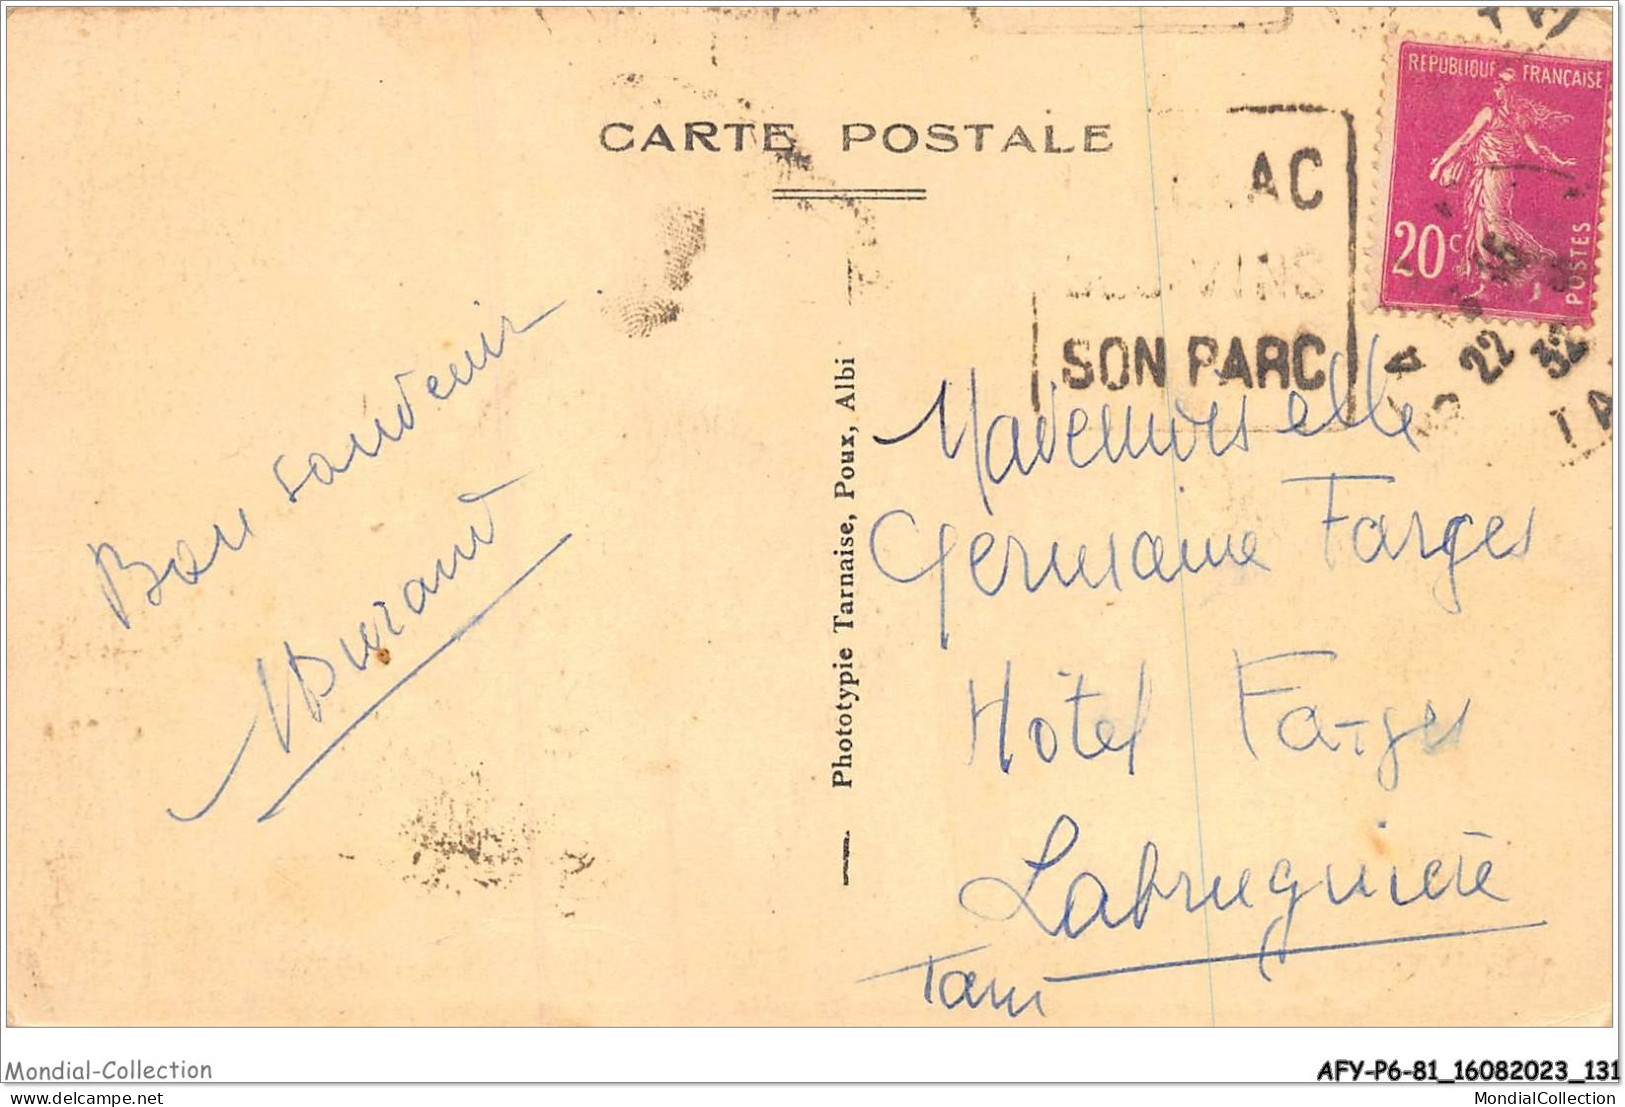 CARTE POSTALE
REPUBLIQUE FRANÇAISE
20c
POSTES
AC
VINS
SON PARC
22
32
TA
Bon souvenir
Durand
Phototypie Tarnaise, Poux, Albi
Mademoiselle
Germaine Farges
Hôtel Farges
Labruguière
Tarn
Mondial-Collection
AFY-P6-81_16082023_131
delcampe.net
MondialCollection